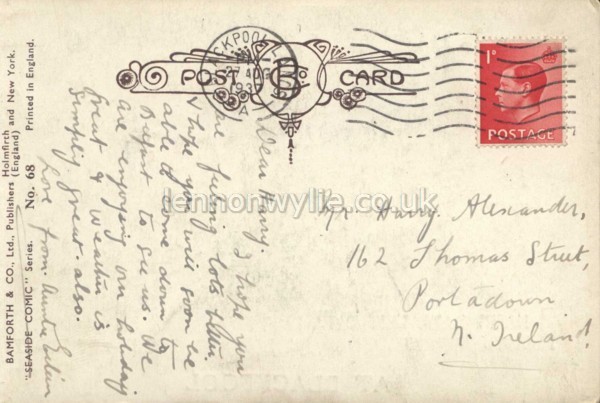 BLACKPOOL
193
A
POST CARD
B & Co.
1ᴰ
POSTAGE
BAMFORTH & CO., Ltd., Publishers Holmfirth and New York.
(England)
"SEASIDE COMIC" Series. No. 68 Printed in England.
Dear Harry. I hope you
are feeling lots better,
& hope you will soon be
able to come down to
Belfast to see us. We
are enjoying our holiday
great & weather is
simply great also.
Love from Auntie
Mr Harry Alexander,
162 Thomas Street,
Portadown
N. Ireland.
lennonwylie.co.uk